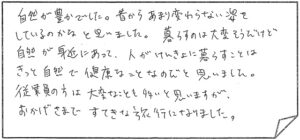 自然が豊かでした。昔からあまり変わらない姿を
しているのかなと思いました。暮らすのは大変そうだけど
自然が身近にあって、人がけんきょに暮らすことは
きっと自然で健康なことなのだと思いました。
従業員の方は大変なことも多いと思いますが、
おかげさまですてきな旅行になりました。